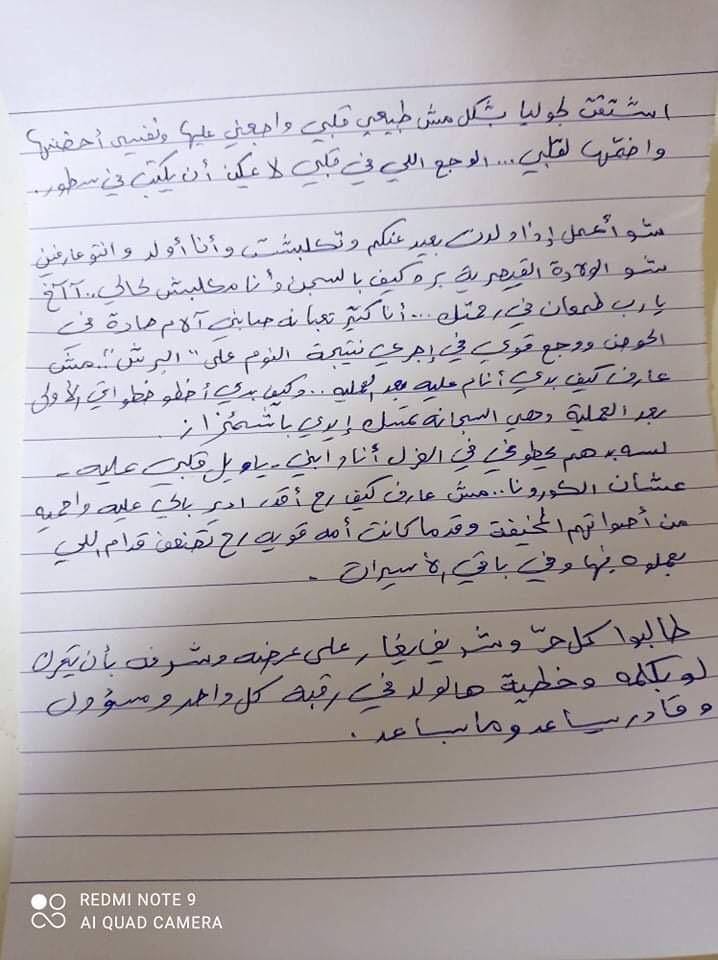 اشتقت لجوليا بشكل مش طبيعي قلبي واجعني عليها ونفسي أحضنها
واضمّها لقلبي... الوجع اللي في قلبي لا يمكن أن يكتب في سطور.
شو أعمل إذا ولدت بعيد عنكم وتكلبشت وأنا أولد وانتو عارفين
شو الولادة القيصرية بره كيف بالسجن وأنا مكلبش لحالي.. آآخ
يا رب طمعان في رحمتك... أنا كثير تعبانه صابني آلام حادة في
الحوض ووجع قوي في إجري نتيجة النوم على "البرش".. مش
عارف كيف بدي أنام عليه بعد العملية... وكيف بدي أخطو خطواتي الأولى
بعد العملية وهي السجانه تمسك إيدي باشمئزاز.
لسه بدهم يحطوني في العزل أنا وابني - يا ويل قلبي عليه -
عشان الكورونا.. مش عارف كيف رح أقدر ادير بالي عليه واحميه
من أصواتهم المخيفة وقد ما كانت أمه قويه رح تضعف قدام اللي
بعملوه فيها وفي باقي الأسيرات.
طالبوا كل حرّ وشريف يغار على عرضه وشرفه بأن يتحرك
لو بكلمه وخطية هالولد في رقبة كل واحد ومسؤول
وقادر يساعد وما بساعد.
REDMI NOTE 9
AI QUAD CAMERA